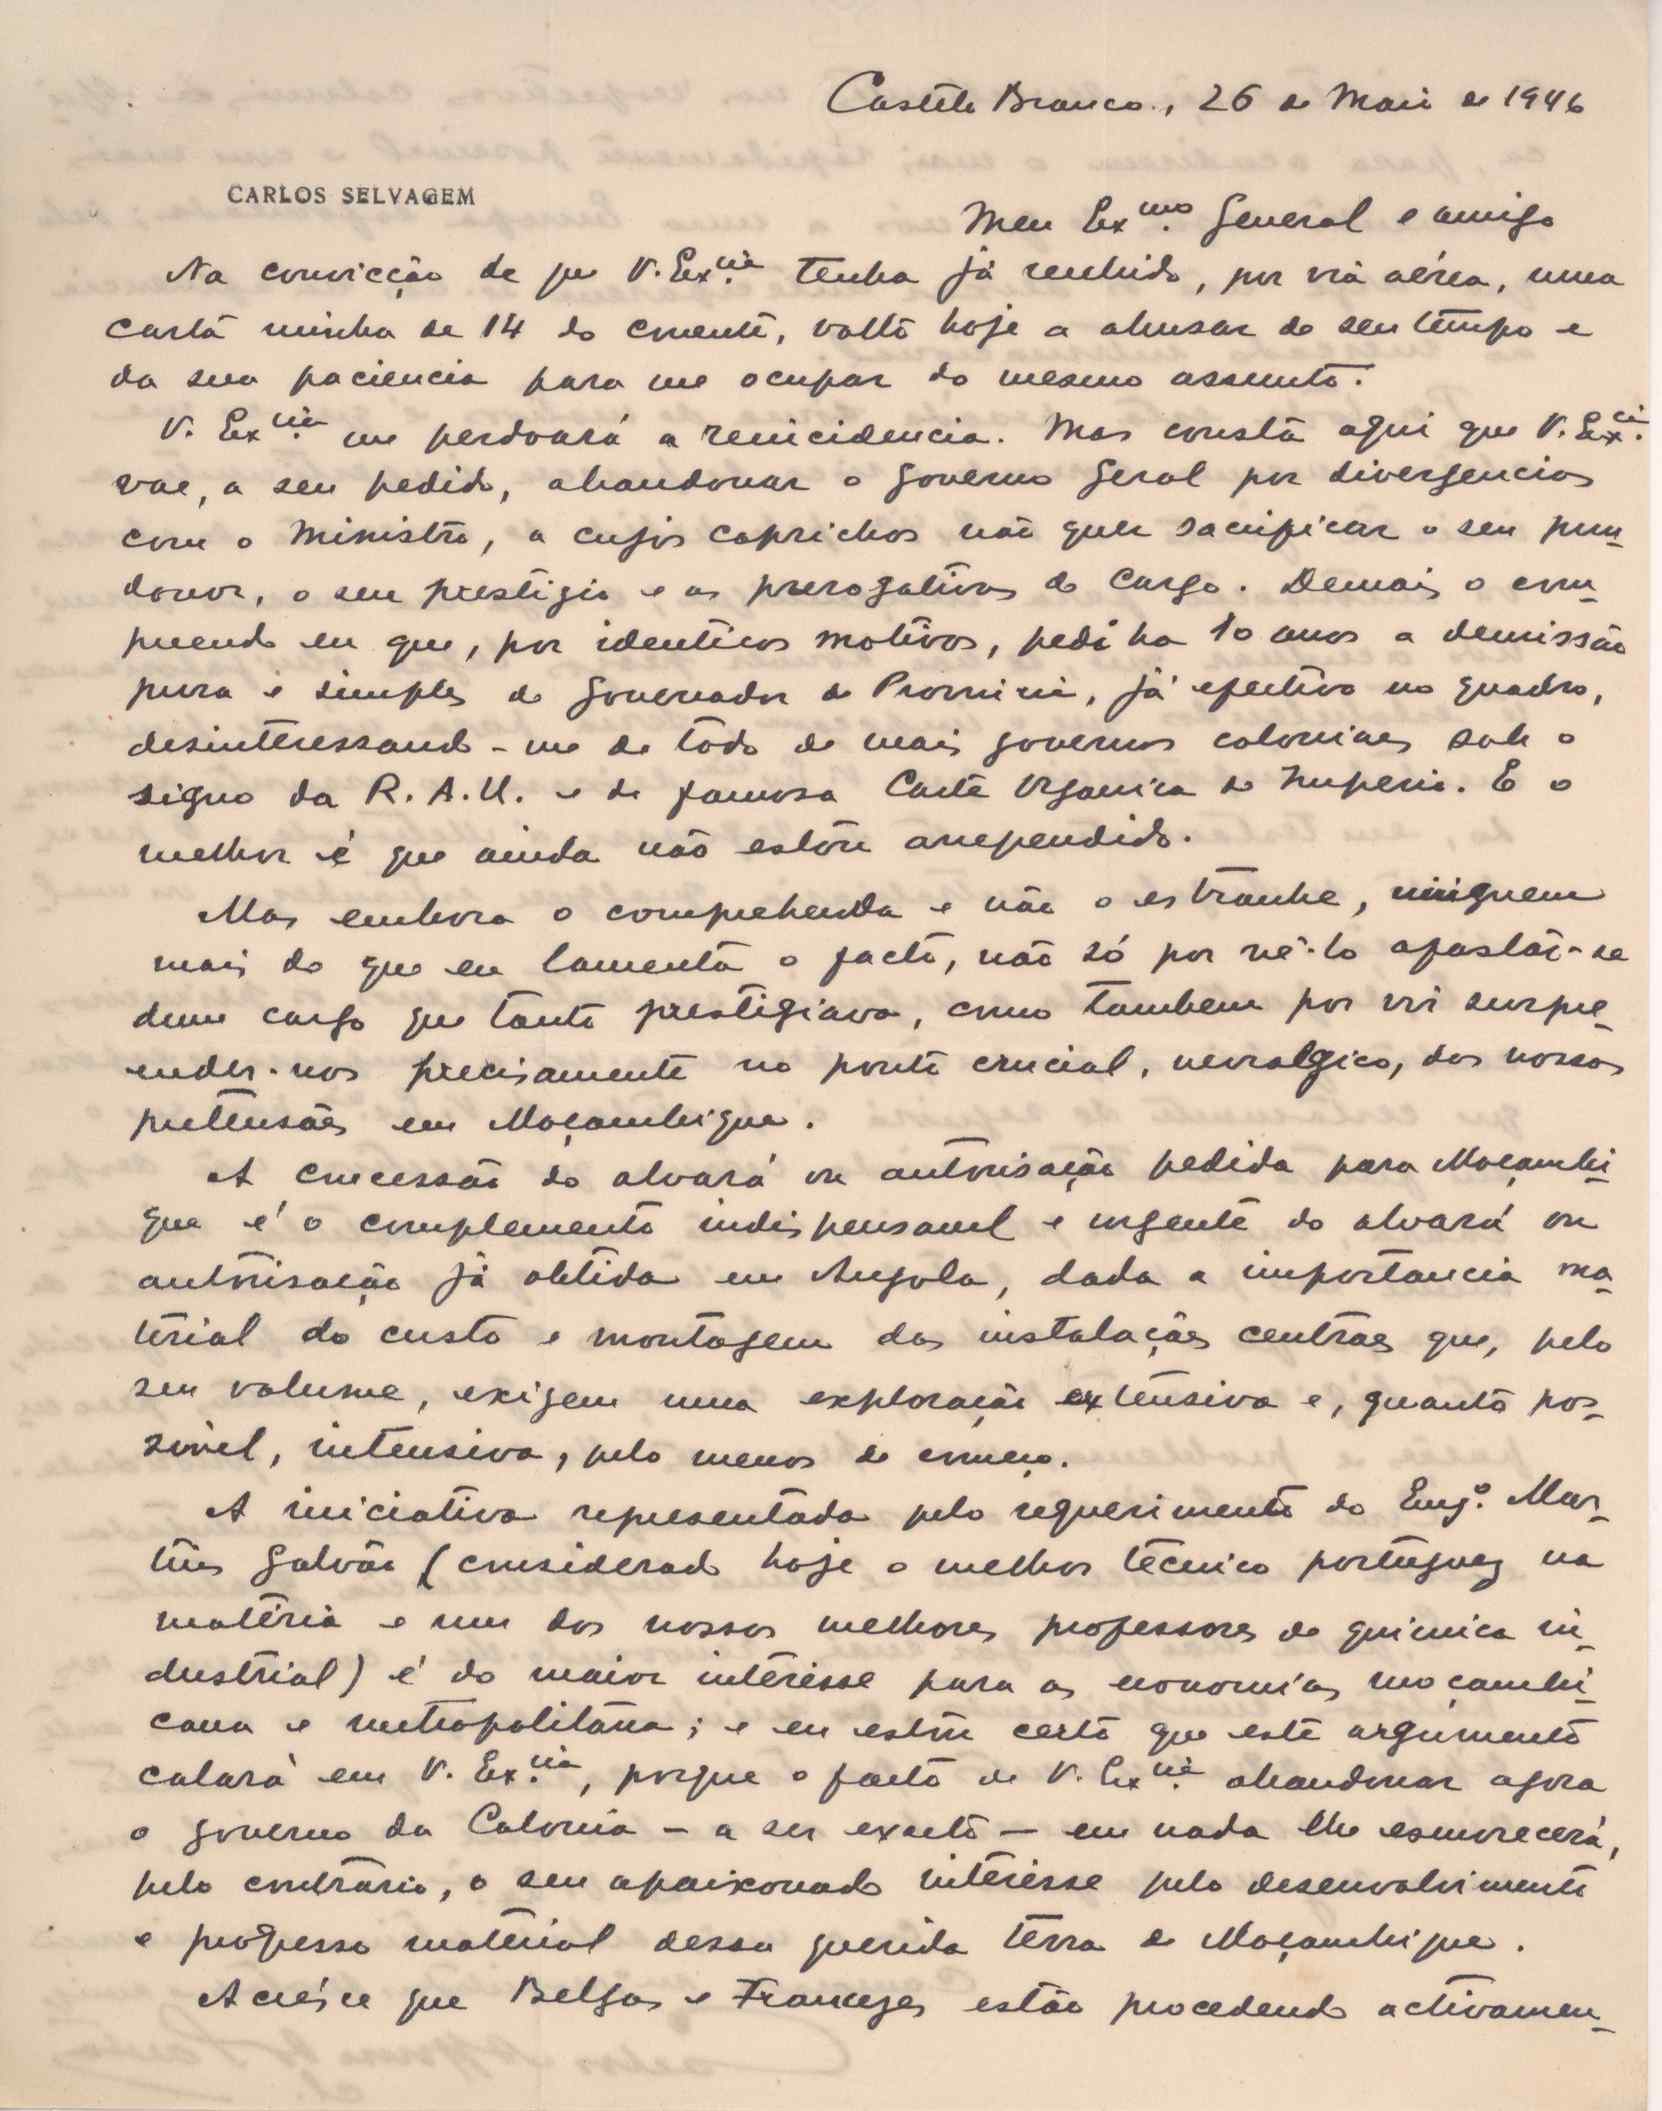 Castelo Branco, 26 de Maio de 1946
CARLOS SELVAGEM
Meu Ex.mo General e amigo
Na convicção de que V. Ex.cia tenha já recebido, por via aérea, uma
carta minha de 14 do corrente, volto hoje a abusar do seu tempo e
da sua paciencia para me ocupar do mesmo assunto.
V. Ex.cia me perdoará a reincidencia. Mas consta aqui que V. Ex.cia
vae, a seu pedido, abandonar o Governo Geral por divergencias
com o Ministro, a cujos caprichos não quer sacrificar o seu pun-
donor, o seu prestigio e as prerogativas do cargo. Demais o com-
preendo eu que, por identicos motivos, pedi ha 10 anos a demissão
pura e simples de Governador de Provincia, já efectivo no quadro,
desinteressando-me de todo de mais governos coloniaes sob o
signo da R. A. U. e da famosa Carta Organica do Imperio. E o
melhor é que ainda não estou arrependido.
Mas embora o comprehenda e não o estranhe, ninguem
mais do que eu lamenta o facto, não só por vê-lo afastar-se
dum cargo que tanto prestigiava, como tambem por vir surpre-
ender-nos precisamente no ponto crucial, nevralgico, das nossas
pretensões em Moçambique.
A concessão do alvará ou autorisação pedida para Moçambi-
que é o complemento indispensavel e urgente do alvará ou
autorisação já obtida em Angola, dada a importancia ma-
terial do custo e montagem das instalações centraes que, pelo
seu volume, exigem uma exploração extensiva e, quanto pos-
sivel, intensiva, pelo menos de começo.
A iniciativa representada pelo requerimento do Eng.º Mar-
tins Galvão (considerado hoje o melhor técnico portuguez na
matéria e um dos nossos melhores professores de quimica in-
dustrial) é do maior interêsse para as economias moçambi-
cana e metropolitana; e eu estou certo que este argumento
calará em V. Ex.cia, porque o facto de V. Ex.cia abandonar agora
o governo da Colonia - a ser exacto - em nada lhe esmorecerá,
pelo contrário, o seu apaixonado interêsse pelo desenvolvimento
e progresso material dessa querida terra de Moçambique.
Acresce que Belgas e Francezes estão procedendo activamen-